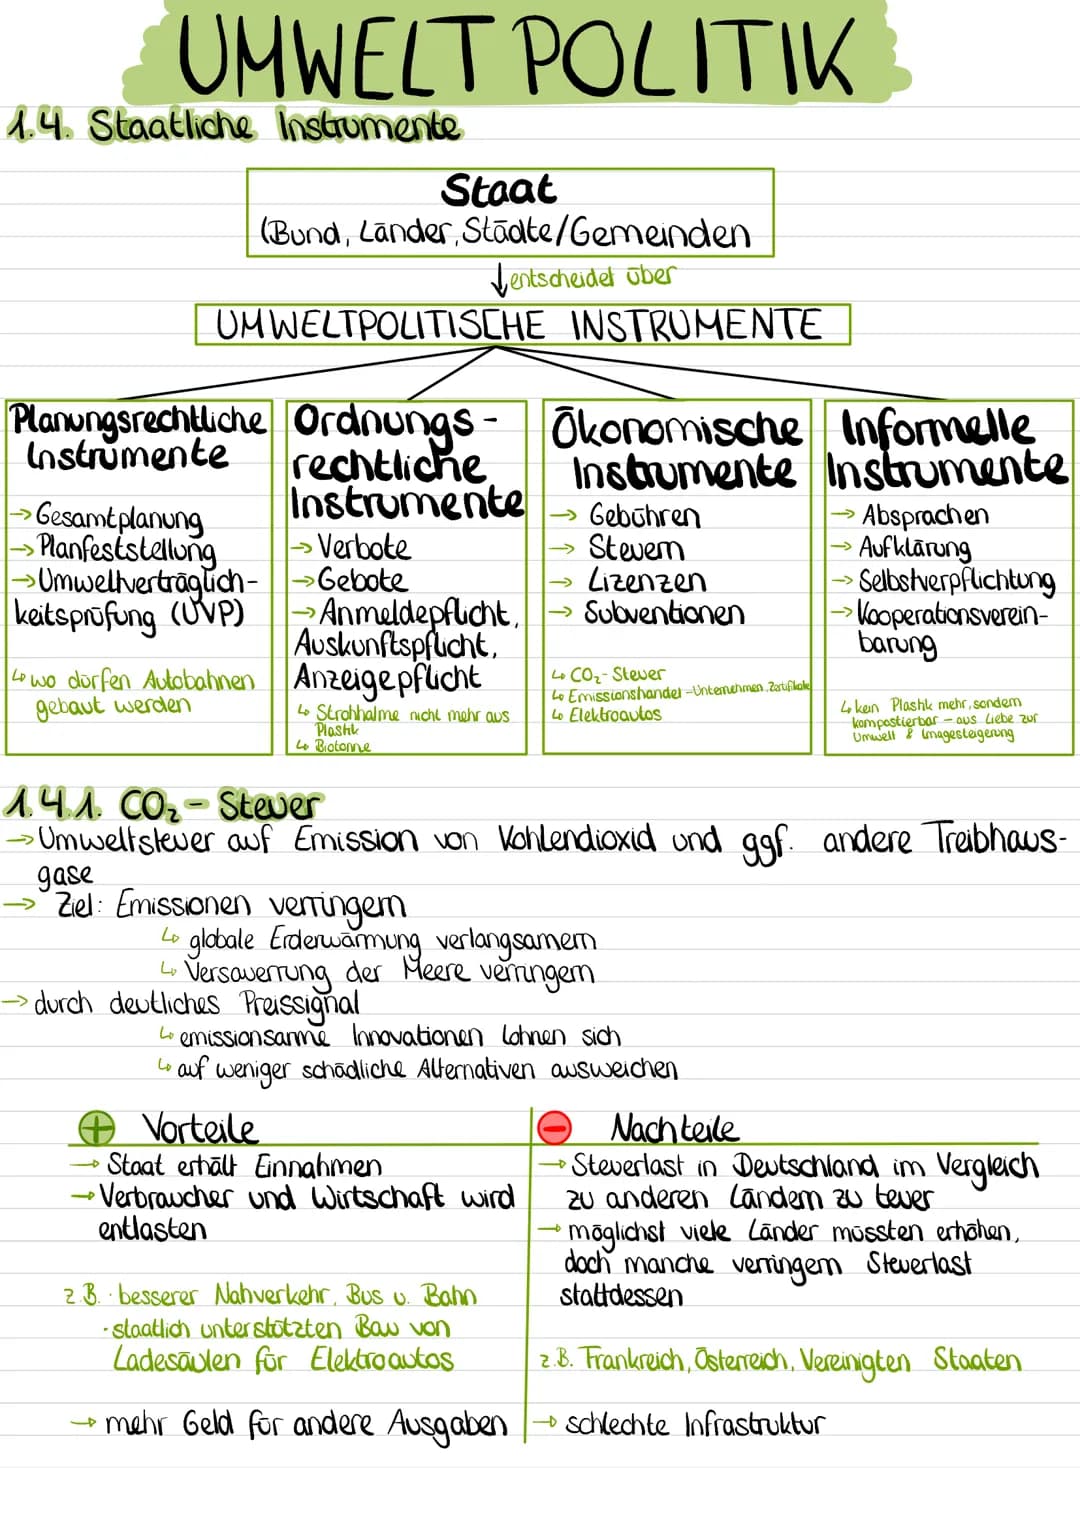 UMWELTPOLITIK
1.4. Staatliche Instrumente
Staat
(Bund, Länder, Städte/Gemeinden
entscheidet über
UMWELTPOLITISCHE INSTRUMENTE
Planungsrechtliche
Instrumente
→ Gesamtplanung
→ Planfeststellung
→ Umweltverträglich-
keitsprüfung (UVP)
↳ wo dürfen Autobahnen
gebaut werden
Ordnungs-
rechtliche
Instrumente
→ Verbote
→ Gebote
→ Anmeldepflicht,
Auskunftspflicht,
Anzeigepflicht
↳ Strohhalme nicht mehr aus
Plastik
↳ Biotonne
Ökonomische
Instrumente
→ Gebühren
→ Steuern
→ Lizenzen
→ Subventionen
↳ CO₂-Steuer
↳ Emissionshandel - Unternehmen, Zertifikate
↳ Elektroautos
Informelle
Instrumente
→ Absprachen
→ Aufklärung
→ Selbstverpflichtung
→ Kooperationsverein-
barung
↳ kein Plastik mehr, sondern
kompostierbar - aus Liebe zur
Umwelt & Imagesteigerung
1.4.1. CO₂-Steuer
→ Umweltsteuer auf Emission von Kohlendioxid und ggf. andere Treibhaus-
gase
→ Ziel: Emissionen verringern
↳ globale Erderwärmung verlangsamern
↳ Versauerrung der Meere verringern
→ durch deutliches Preissignal
↳ emissionsarme Innovationen lohnen sich
↳ auf weniger schädliche Alternativen ausweichen
+ Vorteile
→ Staat erhält Einnahmen
→ Verbraucher und Wirtschaft wird
entlasten
z.B. · besserer Nahverkehr, Bus u. Bahn
· staatlich unterstützten Bau von
Ladesäulen für Elektroautos
→ mehr Geld für andere Ausgaben
− Nachteile
→ Steuerlast in Deutschland im Vergleich
zu anderen Ländern zu teuer
→ möglichst viele Länder müssten erhöhen,
doch manche verringern Steuerlast
stattdessen
z.B. Frankreich, Österreich, Vereinigten Staaten
→ schlechte Infrastruktur